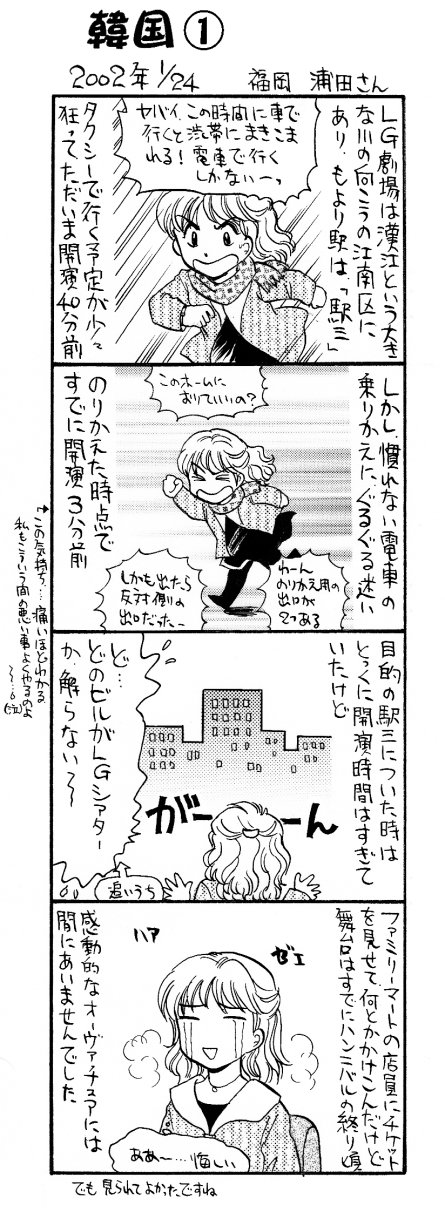 韓国①
2002年1/24
福岡 浦田さん
LG劇場は漢江という大き
な川の向こうの江南区に
あり、もより駅は、「駅三」
ヤバイ、この時間に車で
行くと渋帯にまきこま
れる!電車で行く
しかないーっ
タクシーで行く予定が少々
狂ってただいま開演40分前
しかし、慣れない電車の
乗りかえに、ぐるぐる迷い
このホームに
おりていいの?
わーん
のりかえ用の
出口が
2つある
しかも出たら
反対側の
出口だったー
のりかえた時点で
すでに開演3分前
→この気持ち…痛いほどわかる
私もこういう間の悪い事よくやるのよ
目的の駅三についた時は
とっくに開演時間はすぎて
いたけど
がーーん
ど…
どのビルがLGシアター
か、解らないて〜
追いうち
ファミリーマートの店員にチケット
を見せて、何とかかけこんだけど
舞台はすでにハンニバルの終り頃
ゼェ
ハァ
感動的なオーヴァチュアには
間にあいませんでした
ああ〜…悔しい
でも見られてよかったですね